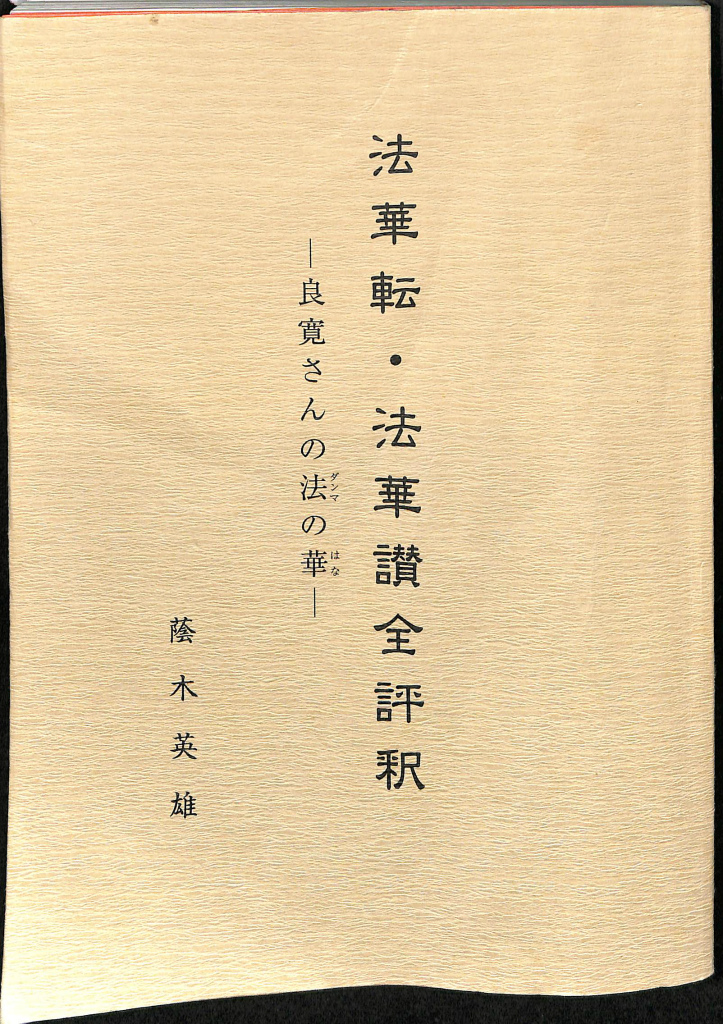 法華転・法華讃全評釈
―良寛さんの法の華―
ダンマ
はな
蔭木英雄